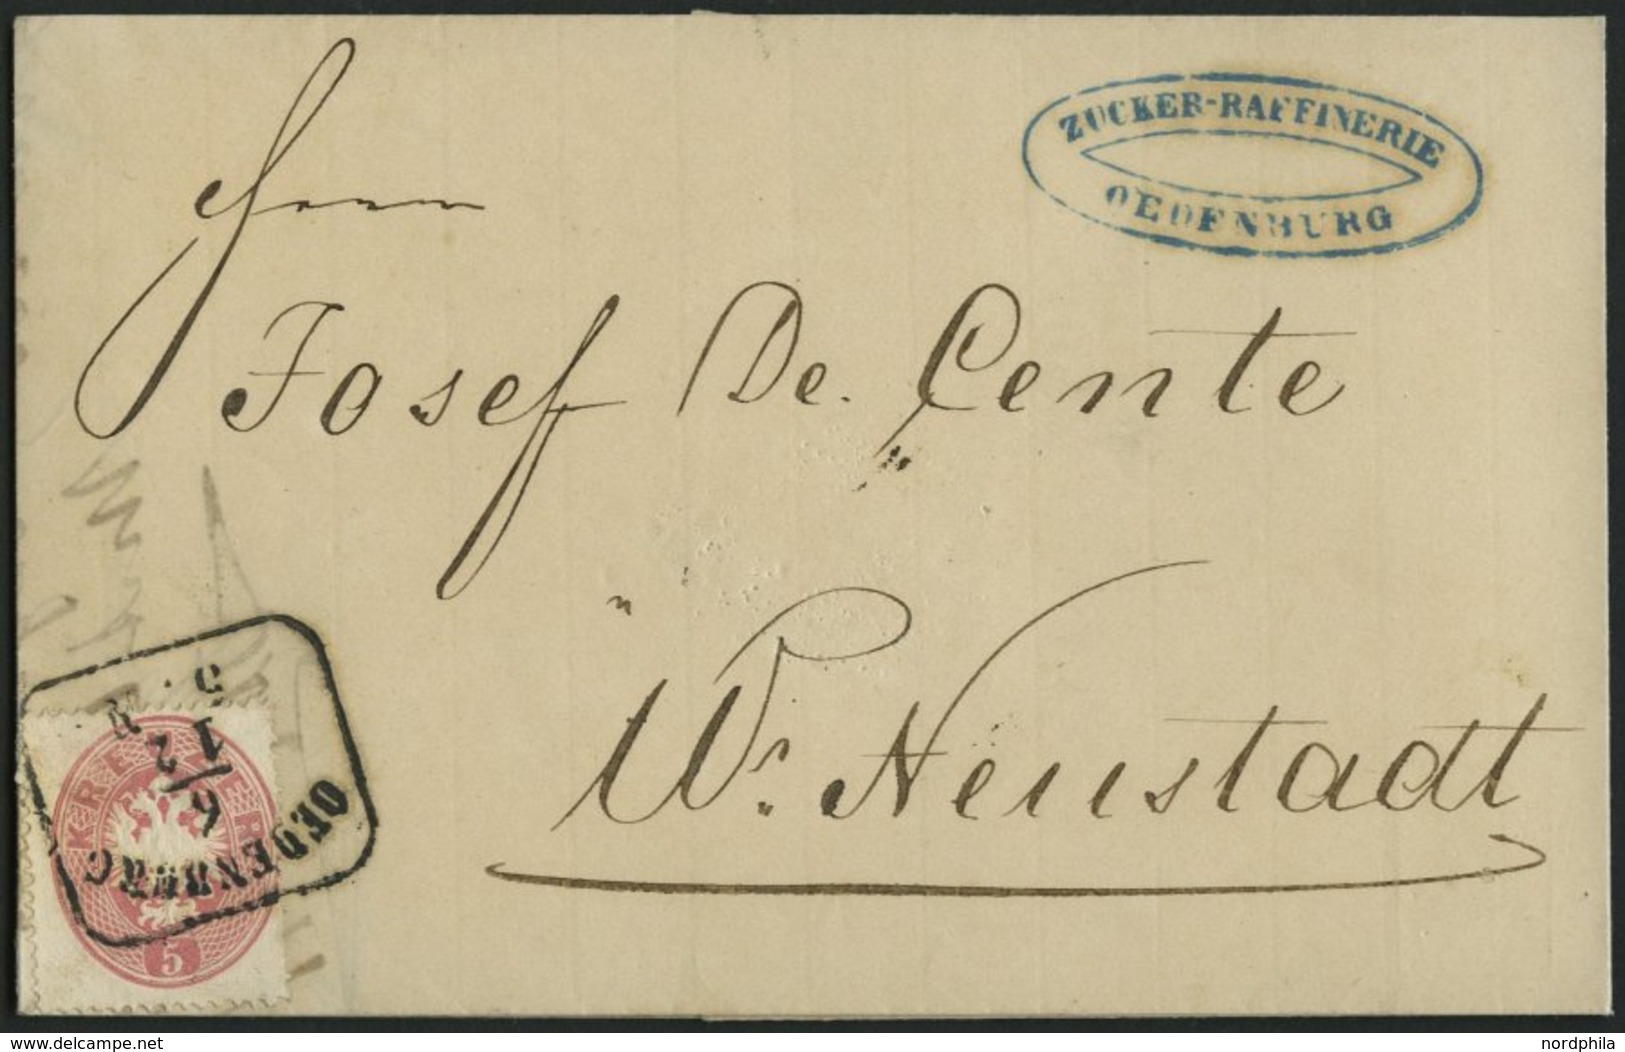 ZUCKER-RAFFINERIE
OEDENBURG
Herrn
Josef De. Cente
Wr. Neustadt
OEDENBURG
6/2
KREUZER
5
www.delcampe.net
nordphila